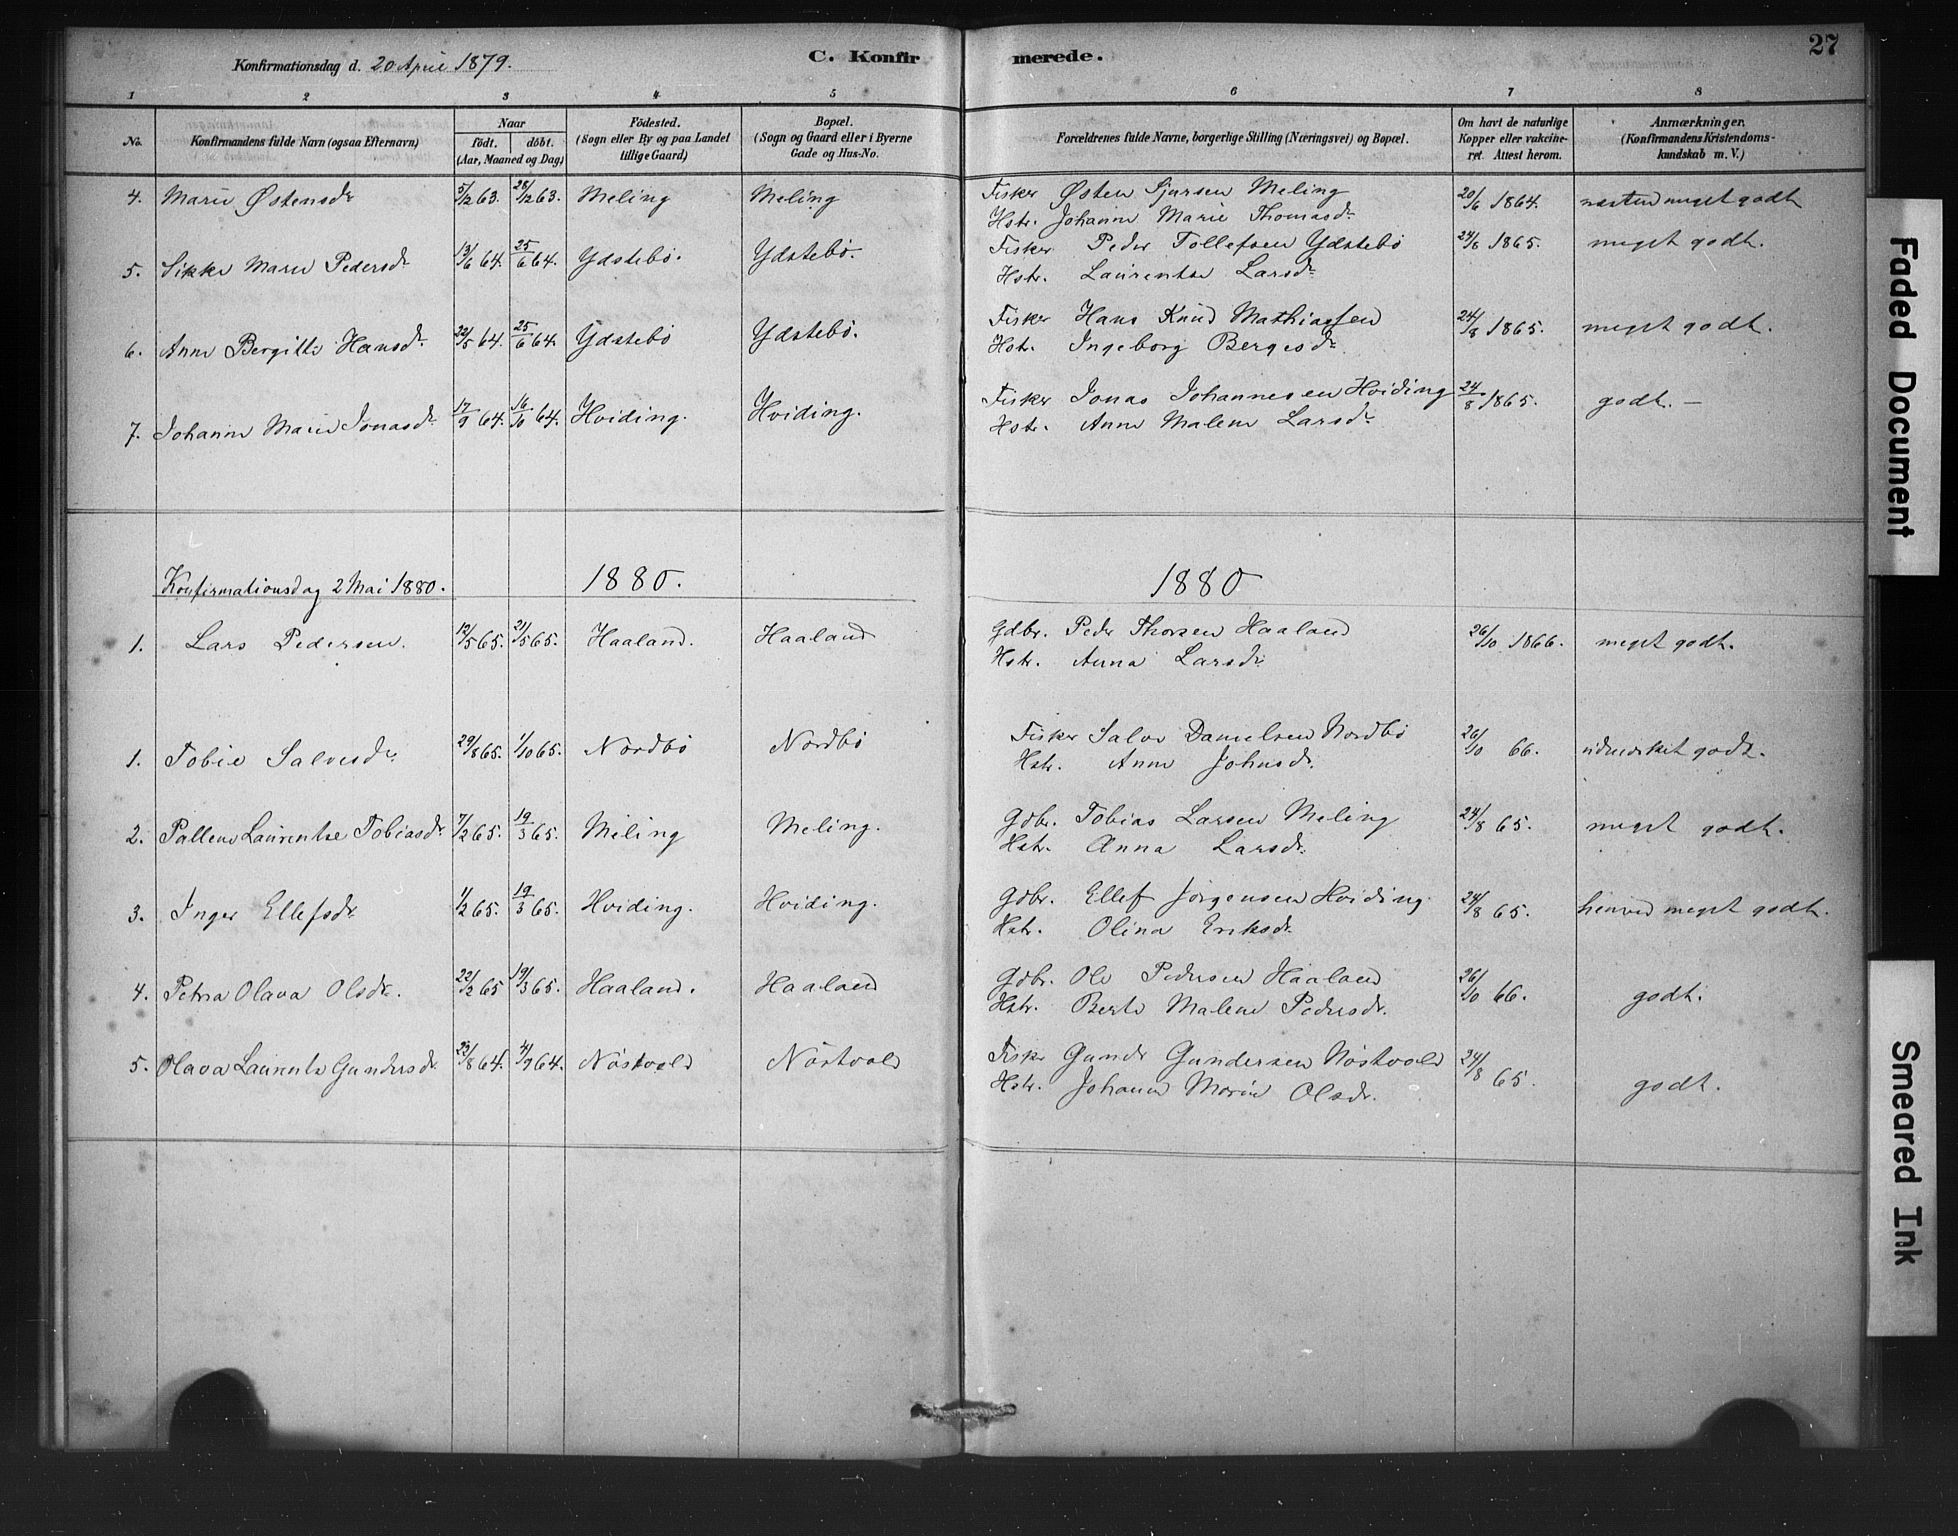 27
Konfirmationsdag d. 20 April 1879. C. Konfirmerede.
1 2 3 4 5 6 7 8
No. Konfirmandens fulde Navn (ogsaa Efternavn) Naar født. døbt. (Aar, Maaned og Dag) Fødested. (Sogn eller By og paa Landet tillige Gaard) Bopæl. (Sogn og Gaard eller i Byerne Gade og Hus-No. Forældrenes fulde Navne, borgerlige Stilling (Næringsvei) og Bopæl. Om havt de naturlige Kopper eller vakcineret. Attest herom. Anmærkninger. (Konfirmandens Kristendomskundskab m. V.)
4. Marie Østensdr 5/12 63. 28/12 63. Meling Meling Fisker Østen Sjursen Meling 20/6 1864. næsten meget godt
Hstr. Johanne Marie Thomasdr
5. Sikke Marie Pedersdr 13/6 64. 25/6 64. Ydstebö. Ydstebö. Fisker Peder Tollefsen Ydstebö 24/8 1865. meget godt.
Hstr. Laurentse Larsdr
6. Anne Bergitte Hansdr. 22/5 64. 25/6 64. Ydstebö Ydstebö. Fisker Hans Knud Mathiassen 24/8 1865. meget godt.
Hstr. Ingeborg Bergesdr
7. Johanne Marie Jonasdr 17/9 64. 16/10 64. Hviding. Hviding. Fisker Jonas Johannesen Hviding 24/8 1865. godt. —
Hstr. Anne Malene Larsdr
Konfirmationsdag 2 Mai 1880. 1880. 1880
1. Lars Pedersen. 12/5 65. 21/5 65. Haaland. Haaland Gdbr. Peder Thorsen Haaland 26/10 1866. meget godt.
Hstr. Anna Larsdr
1. Tobie Salvesdr 29/8 65. 1/10 65. Nordbö Nordbö Fisker Salve Danielsen Nordbö 26/10 66. udmærket godt.
Hstr. Anne Johnsdr.
2. Pallene Laurentse Tobiasdr 7/2 65. 19/3 65. Meling Meling. Gdbr. Tobias Larsen Meling 24/8 65. meget godt.
Hstr. Anna Larsdr.
3. Inger Ellefsdr 1/2 65. 19/3 65. Hviding. Hviding. Gdbr. Ellef Jörgensen Hviding. 24/8 65. henved meget godt.
Hstr. Olina Eriksdr.
4. Petra Olava Olsdr. 22/2 65 19/3 65. Haaland. Haaland Gdbr. Ole Pedersen Haaland 26/10 66. godt.
Hstr. Berte Malene Pedersdr.
5. Olava Laurentse Gundersdr 23/8 64. 4/9 64. Nöstvold Nöstvold Fisker Gunder Gundersen Nöstvold 24/8 65. godt.
Hstr. Johanne Marie Olsdr.
Faded Document
Smeared Ink